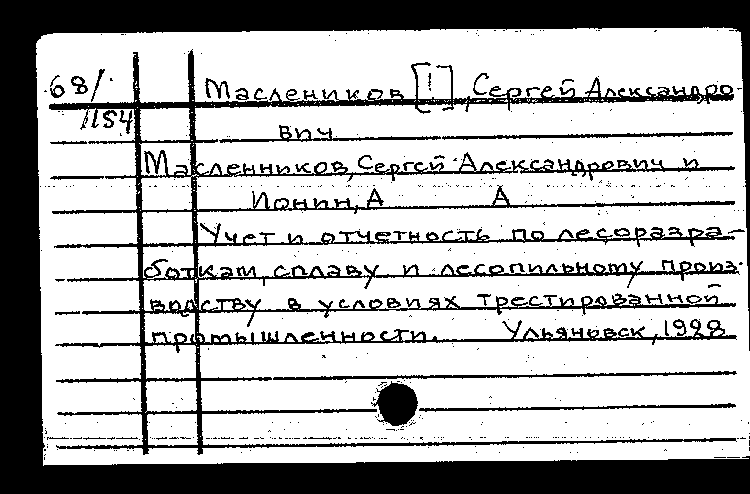 68/ Маслеников [!], Сергей Александро
1154
вич
Масленников, Сергей Александрович и
Ионин, А А
Учет и отчетность по лесоразра-
боткам, сплаву и лесопильному произ-
водству в условиях трестированной
промышленности. Ульяновск, 1928